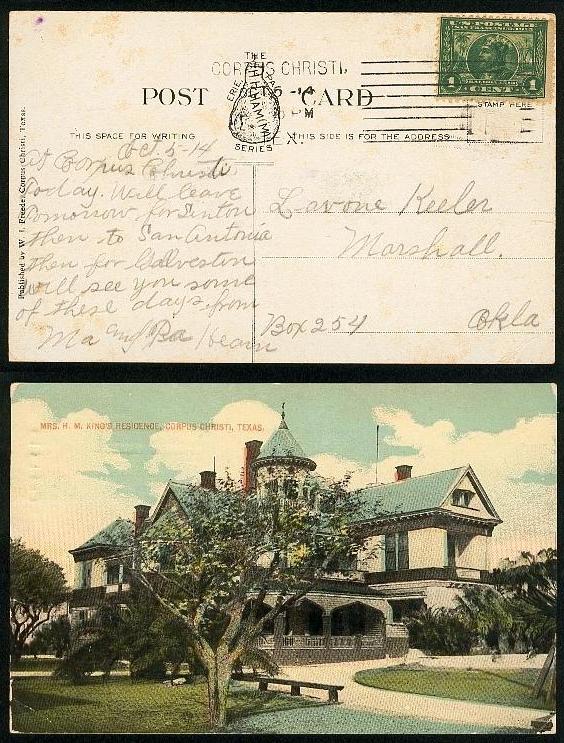 THE
ERIE
PHOSTINT
SERIES
POST CARD
CORPUS CHRISTI,
5 -14
PM
U.S. POSTAGE
SAN FRANCISCO 1915
1 CENT 1
STAMP HERE
THIS SPACE FOR WRITING
THIS SIDE IS FOR THE ADDRESS
Oct 5-14
At Corpus Christi,
today. Will leave
Tomorrow for Sinton
then to San Antonia
then for Galveston
will see you some
of these days. from
Ma and Pa Hearn
Lavone Keeler
Marshall.
Box 254 Okla
Published by W. J. Freede, Corpus Christi, Texas.
MRS. H. M. KING'S RESIDENCE, CORPUS CHRISTI, TEXAS.